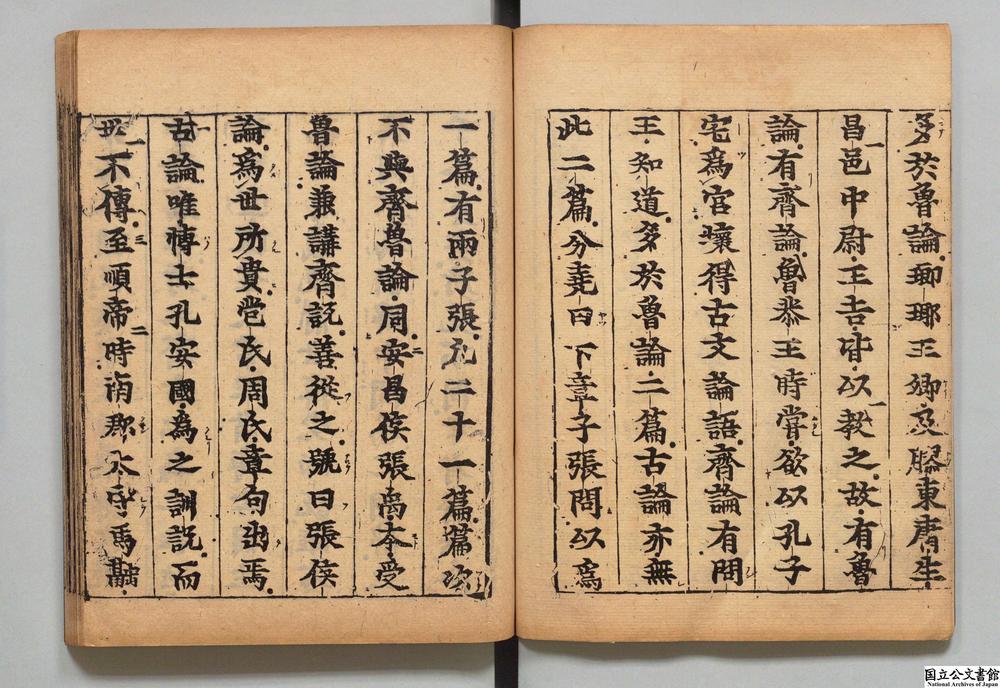 多於魯論琅瑘王卿及膠東庸生
昌邑中尉王吉皆以教之故有魯
論有齊論魯恭王時甞欲以孔子
宅為宮壞得古文論語齊論有問
王知道多於魯論二篇古論亦無
此二篇分尭曰下章子張問以為
一篇有兩子張凢二十一篇篇次
不與齊魯論同安昌侯張禹本受
魯論兼講齊說善從之號曰張侯
論為世所貴苞氏周氏章句出焉
古論唯博士孔安國為之訓說而
世不傳至順帝時南郡太守馬融
国立公文書館
National Archives of Japan